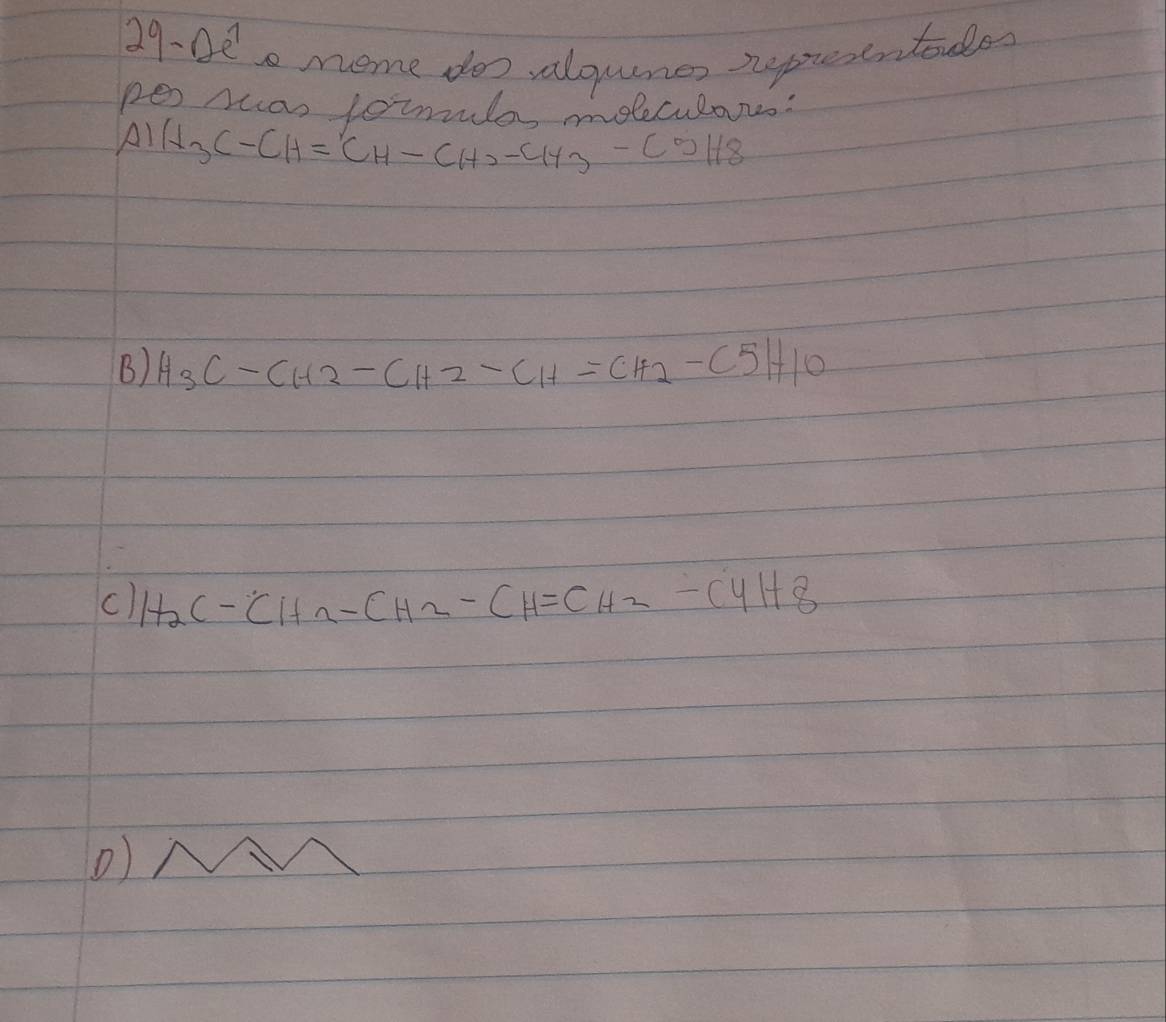 29-Dê o nome dos alquenos representados
por suas fórmulas moleculares:
A) H3C-CH=CH-CH2-CH3 - C5H8
B) H3C-CH2-CH2-CH=CH2-C5H10
C) H2C-CH2-CH2-CH=CH2 -C4H8
D)